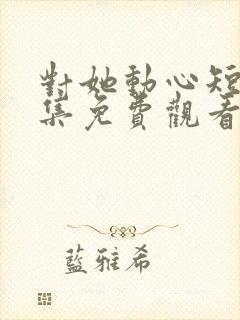 對她動心短
集免費觀看
藍雅希